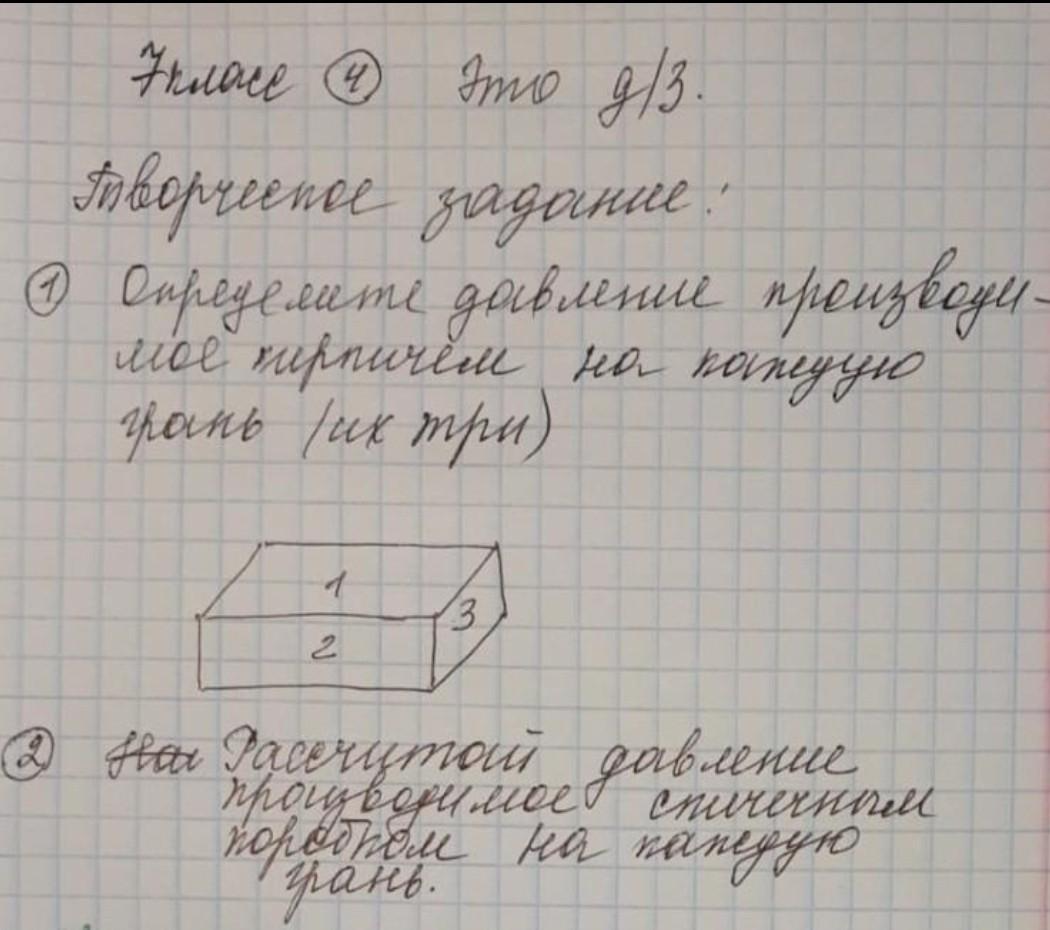 7 класс ④ Это д/з.
Творческое задание:
① Определите давление производи-
мое кирпичем на каждую
грань (их три)
1
2
3
② Рассчитай давление
производимое спичечным
коробком на каждую
грань.